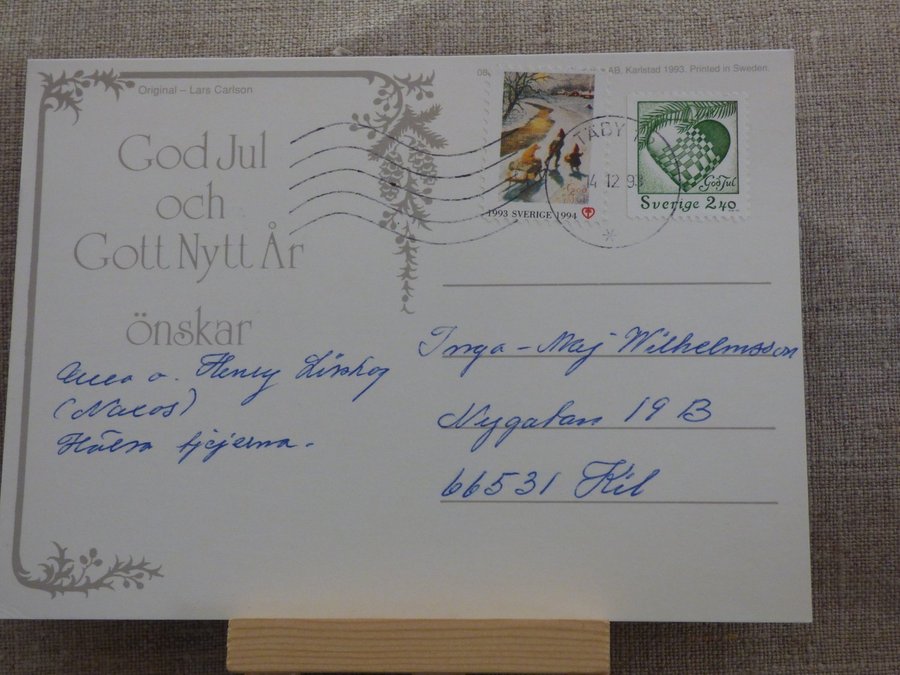 Original – Lars Carlson
God Jul
och
Gott Nytt År
önskar
o. Henry
(Naeos)
Hälsa tjejerna.
AB, Karlstad 1993. Printed in Sweden.
God Jul
1993 SVERIGE 1994
TÄBY
14 12 93
God Jul
Sverige 2.40
Inga-Maj Wilhelmsson
Nygatan 19 B
66531 Kil